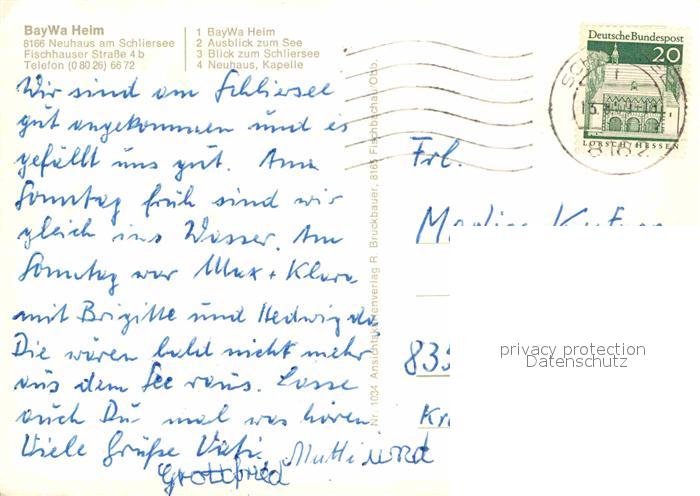 BayWa Heim
8166 Neuhaus am Schliersee
Fischhauser Straße 4b
Telefon (0 80 26) 66 72
1 BayWa Heim
2 Ausblick zum See
3 Blick zum Schliersee
4 Neuhaus, Kapelle
Deutsche Bundespost
20
LORSCH/HESSEN
8162
Wir sind am Schliersee
gut angekommen und es
gefällt uns gut. Am
Sonntag früh sind wir
gleich ins Wasser. Am
Sonntag war Max + Klara
mit Brigitte und Hedwig da.
Die wären bald nicht mehr
aus dem See raus. Lasse
auch Du mal was hören
Viele Grüße Vati, Mutti und
Gottfried
Nr. 1034 Ansichtskartenverlag R. Bruckbauer, 8165 Fischbachau/Obb.
Frl.
835
privacy protection
Datenschutz